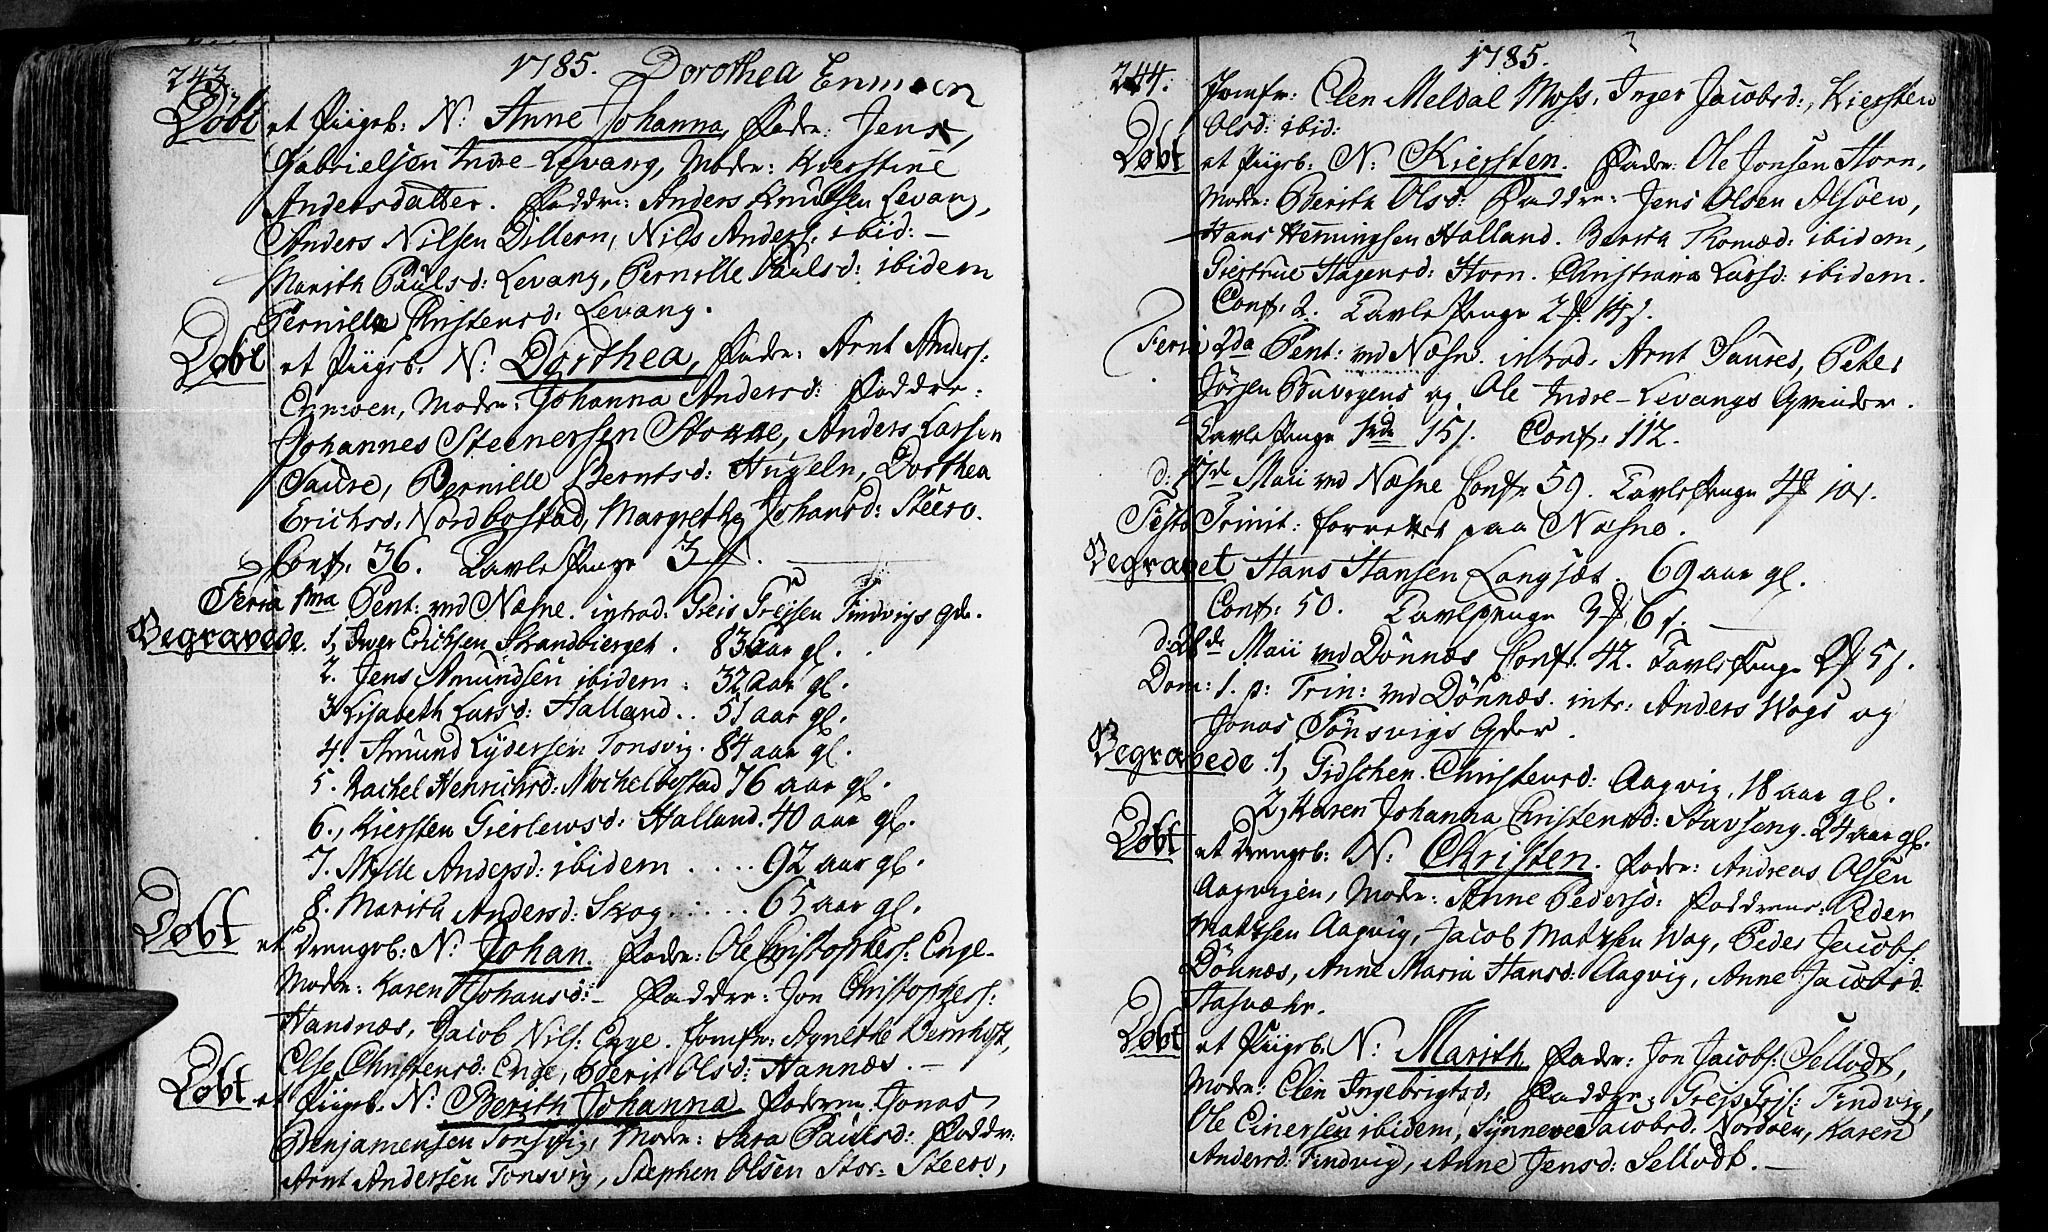 243.
1785. Dorothea Enmoen
Døbt et Piigeb: N: Anne Johanna, Fader: Jens
Gabrielsen Indre-Levang, Moder: Kierstine
Andersdatter. Faddre: Anders Knudsen Levang,
Anders Nilsen Dillern, Nils Anders: ibid: –
Marith Paulsd: Levang, Pernille Paulsd: ibidem
Pernille Christensd: Levang.
Døbt et Piigeb: N: Dorthea, Fader: Arnt Anders:
Enmoen, Moder: Johanna Andersd: Faddre:
Johannes Steenersen, Anders Larsen
Saure, Pernille Berntsd: Hugeln, Dorthea
Erichsd: Nordbostad, Margrethe Johansd: Steero.
Conf: 36. Tavle Penge 3
Feria 1ma Pent: ved Næsne. introd: Greis Grejsen Tindvigs qde.
Begravede. 1, Iwer Erichsen Strandbierget. 83 aar gl.
2. Jens Amundsen ibidem. 32 aar gl.
3. Lisabeth Larsd: Halland.. 51 aar gl.
4. Amund Lydersen Tonsvig. 84 aar gl.
5. Rachel Henrichsd: Michelbostad 76 aar gl.
6., Kiersten Gierlewsd: Halland. 40 aar gl.
7. Nille Andersd: ibidem .... 92 aar gl.
8. Marith Andersd: Skog ..... 65 aar gl.
Døbt et Drengeb: N: Johan. Fader: Ole Christophers: Enge-
Moder: Karen Johansd: – Faddre: Jon Christophers:
Handnæs, Jacob Nils: Enge. Jomfr: Agnethe
Else Christensd: Enge, Berit Olsd: Hannæs. –
Døbt et Piigeb. N: Berith Johanna Faderen Jonas
Benjamensen Tonsvig, Moder: Sara Paulsd: Faddr:
Arnt Andersen Tonsvig, Stephen Olsen Stor-Steero,
244.
1785.
Jomfr: Elen Meldal Moss, Inger Jacobsd:, Kiersten
Olsd: ibid:
Døbt et Piigeb: N: Kiersten. Fader: Ole Jonsen Storn,
Moder: Berith Olsd: Faddre: Jens Olsen Alsøen,
Hans Henningsen Halland. Berith Thomæd: ibidem,
Giertrue Hagensd: Storn. Christiana Larsd: ibidem.
Conf: 2. Tavle Penge 2 14 s.
Feria 2da Pent: ved Næsne. introd. Arnt Saures, Peter
Jørgen Buvogens og Ole Indre-Levangs Qvinder.
Tavle Penge 1rd 15 s. Conf: 112.
d: 17de Maii ved Næsne Conf: 59. Tavle Penge 4 10 s.
Festo Trinit: forrettet paa Næsne.
Begravet Hans Hansen Langsæt. 69 aar gl.
Conf: 50. Tavlepenge 3 6 s.
d: 28de Maii ved Dönnæs Conf: 42. Tavle Penge 2 5 s.
Dom: 1. p: Trin: ved Dönnæs. intr: Anders Wogs og
Jonas Tönsvigs Qder.
Begravede. 1, Gidschen. Christensd: Aagvig. 18 aar gl.
2, Karen Johanna Christensd: Stavseng. 24 aar gl.
Døbt et Drengeb: N: Christen. Fader: Andreas Olsen
Aagvigen, Moder: Anne Pedersd: Faddrene: Peder
Mathsen Aagvig, Jacob Mathsen Wog, Peder Jacobs:
Dönnæs, Anne Maria Hansd: Aagvig, Anne Jacobsd
Hasvæhr.
Døbt et Piigeb. N: Marith. Fader: Jon Jacobs: Sellodt,
Moder: Elen Ingebrigtsd: Faddre: Greis Greis: Tindvig,
Ole Einersen ibidem, Synneve Jacobsd: Nordøen, Karen
Andersd: Tindvig, Anne Jensd: Sellodt. –